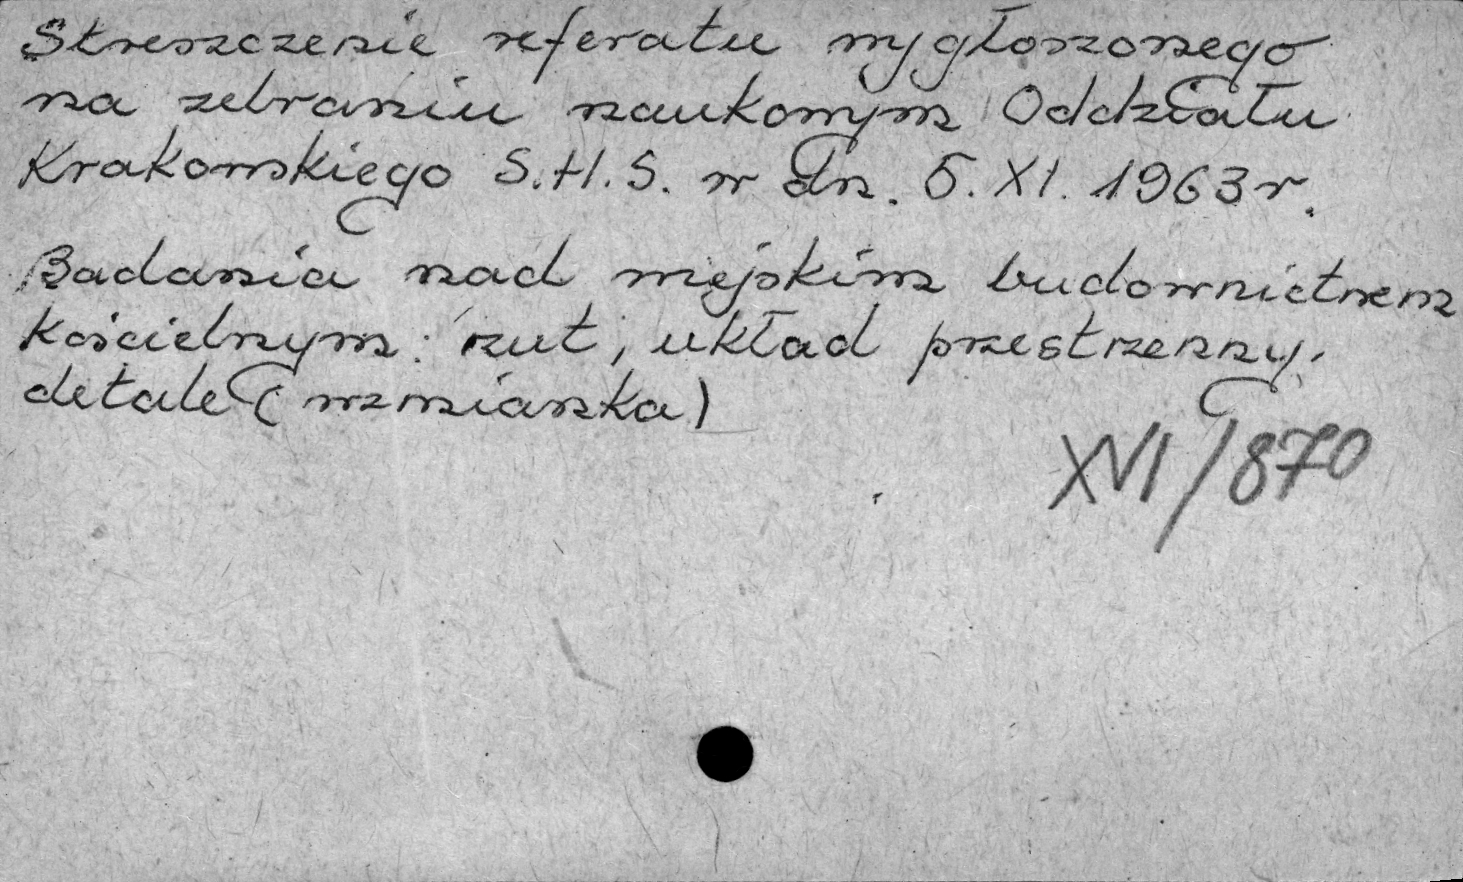 Streszczenie referatu wygłoszonego
na zebraniu naukowym Oddziału
Krakowskiego S.H.S. w dn. 5. XI. 1963 r.
Badania nad miejskim budownictwem
kościelnym: rzut, układ przestrzenny,
detale (wzmianka)
XVI/870